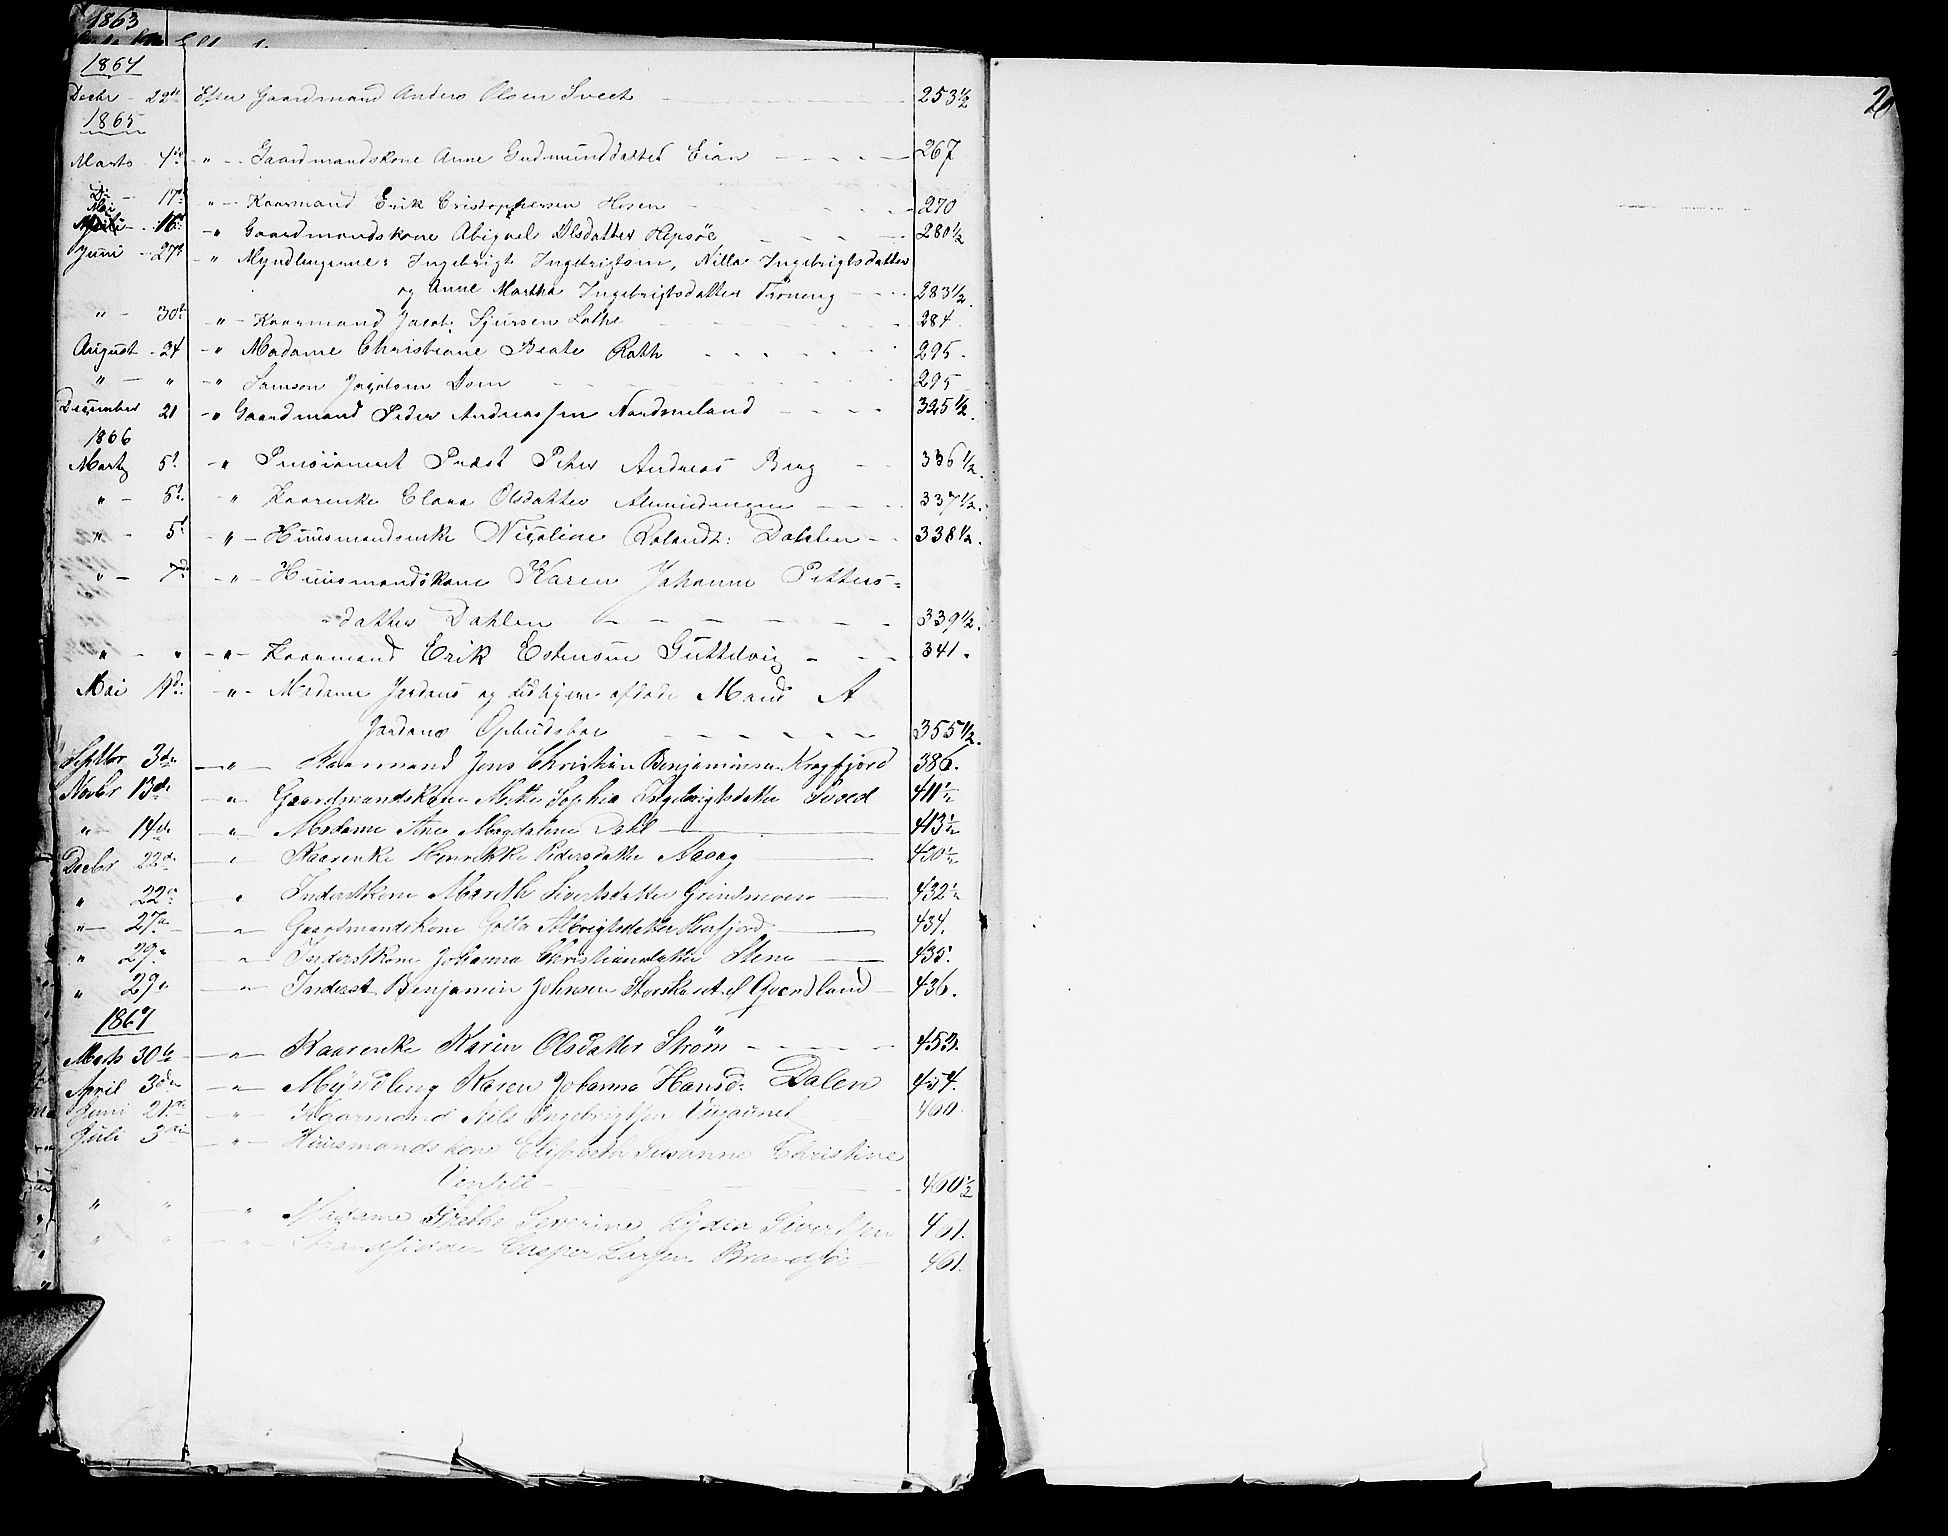 1863
1864
Decbr - 22de Efter Gaardmand Anders Olsen Sveet - - - 253 1/2
1865
Marts - 4de " - Gaardmandskone Anne Gudmunddatter Eian - - - - 267
Do - 17de " - Kaarmand Erik Cristophersen Hosen - - - 270
Mai - 16de - " Gaardmandskone Abigael Olsdatter Hepsöe - - - 280 1/2
Juni - 27de - " Myndlingerne: Ingebrigt Ingebrigtsen, Nilla Ingebrigtsdatter
og Anne Martha Ingebrigtsdatter Fröning - - - 283 1/2.
" - 30te - " - Kaarmand Jacob Sjursen Lothe - - - 284.
August - 24 - " Madame Christiane Beate Rath - - - - 295.
" - " - " Samson Jacobsen - - - 295
December 21 - " Gaardmand Peder Andreassen Nordmeland - - - - 325 1/2.
1866
Marts 5t - " Pensioneret Præst Peter Andreas Berg - - 336 1/2.
" - 5t - " Kaarenke Clara Olsdatter - - - 337 1/2.
" - 5t - " - Huusmandsenke Nicoline Rolandt: Dahlen - - 338 1/2.
" - 7de - " - Huusmandskone Karen Johanne Petters=
=datter Dahlen - - - - - - 339 1/2.
" - " - " - Kaarmand Erik Estensen Guttelvig - - - 341.
Mai - " - Madame Jordans og tidligere afdøde Mand A
Jordans Opbudsboe - - - - - - 355 1/2.
Septbr 3de - " - Kaarmand Jens Christian Benjaminsen Kragfjord 386.
Novbr 13de - " Gaardmandskone Mette Sophia Ingebrigtsdatter 411 1/2
" - 14de - " - Madame Ane Magdalene Dahl - 413 1/2
Decbr 22de - " Kaarenke Henrikke Pedersdatter Aasag - 430 1/2
" 22de " Inderstkone Mareth Sivertsdatter Grindmoen - 432 1/2
" - 27de - " Gaardmandskone Golla Albrigtsdatter Herfjord - 434.
" 29de - " Inderstkone Johanna Christiansdatter Stene - 435.
" 29de - " Inderst Benjamin Johnsen - 436.
1867
Marts 30te - " - Kaarenke Karen Olsdatter Strøm - - - - - 453.
April 3de - " - Myndling Karen Johanna Hansd: Dalen 454.
Juni 21de - " - Kaarmand Nils Ingebrigtsen 460.
Juli 3die - " - Huusmandskone Elisabeth Susanne Christine
- - - 460 1/2
" " - " Madame Grethe Severine Lydia Sivertsen 461.
" " - " - Strandsidder Casper Larsen Brandsöe - 461.
20